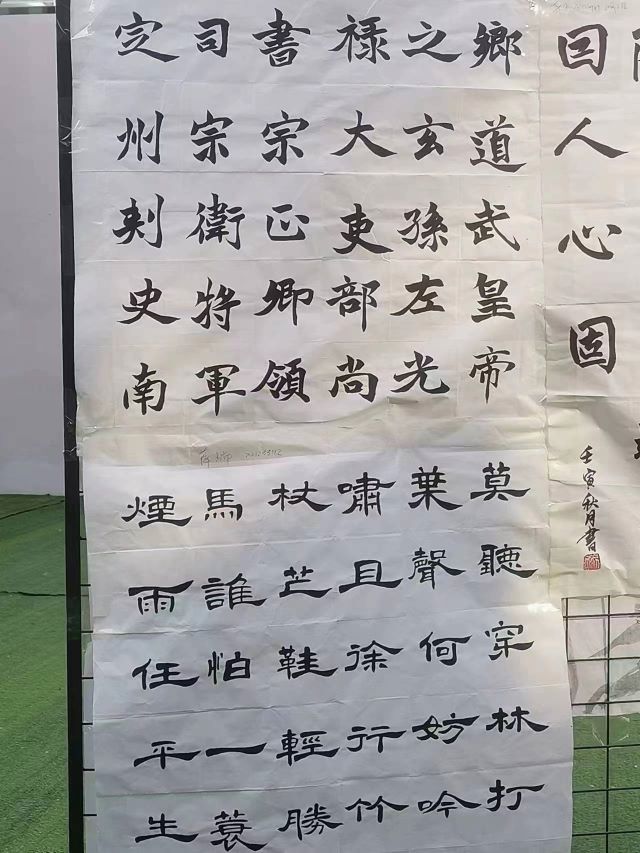 回人心固
壬寅秋月書
鄉道武皇帝
之玄孫左光
禄大吏部尚
書宗正卿領
司宗衛将軍
定州刺史南
莫聽穿林打
葉聲何妨吟
嘯且徐行竹
杖芒鞋輕勝
馬誰怕一蓑
煙雨任平生